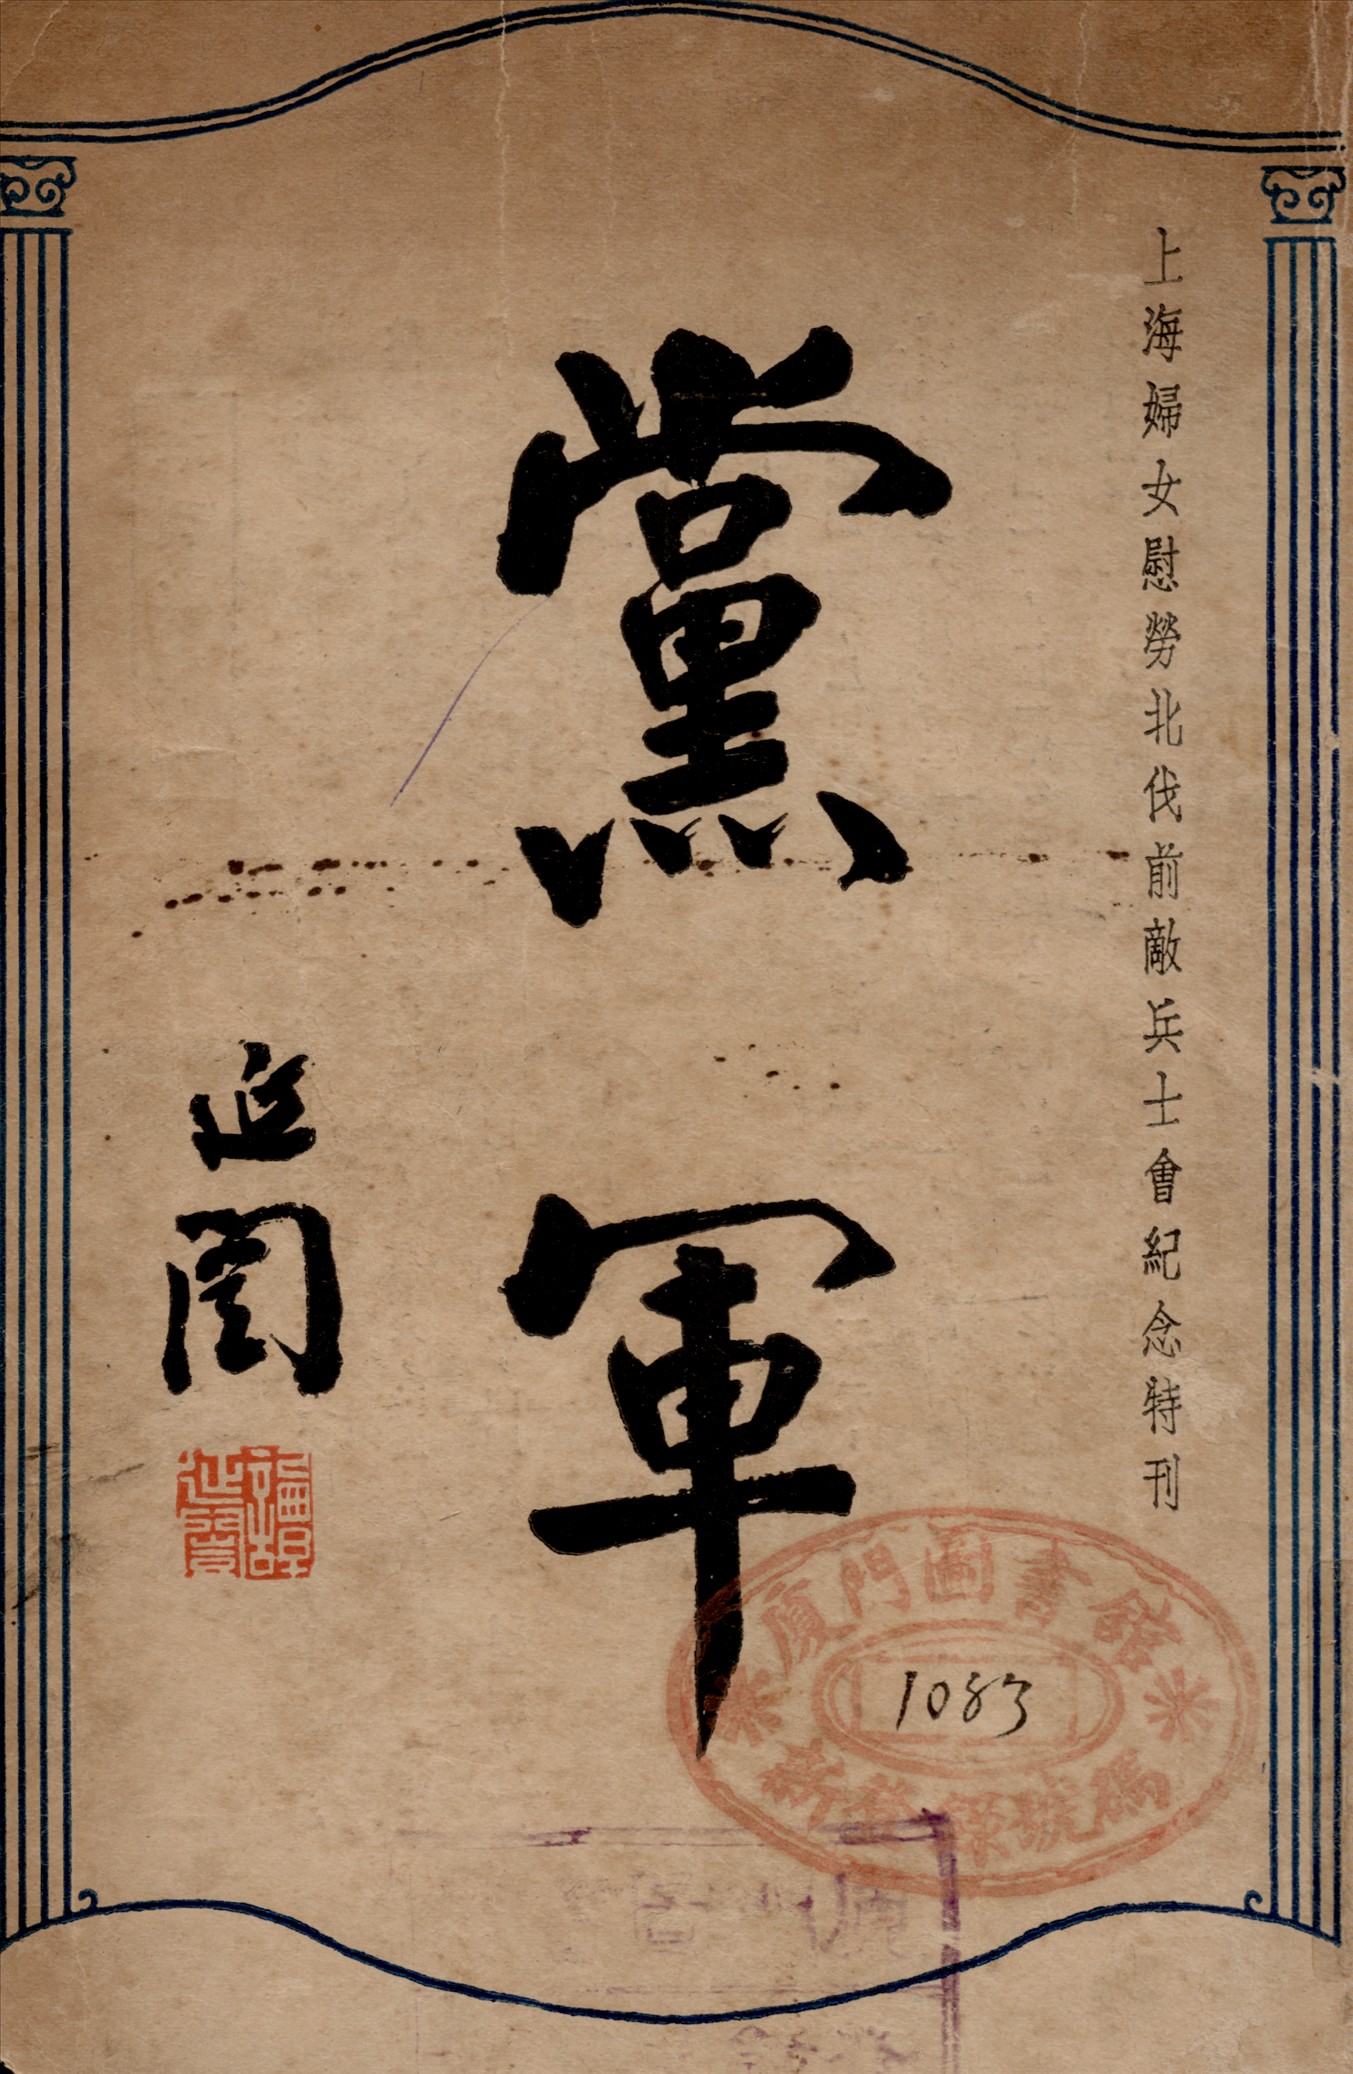 上海婦女慰勞北伐前敵兵士會紀念特刊
黨軍
延闓
廈門圖書館
1083
號碼